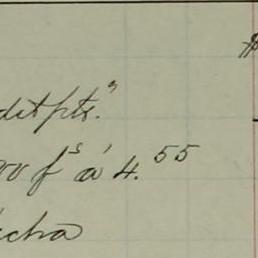 ditpts."
00 fˢ á 4.⁵⁵
echa